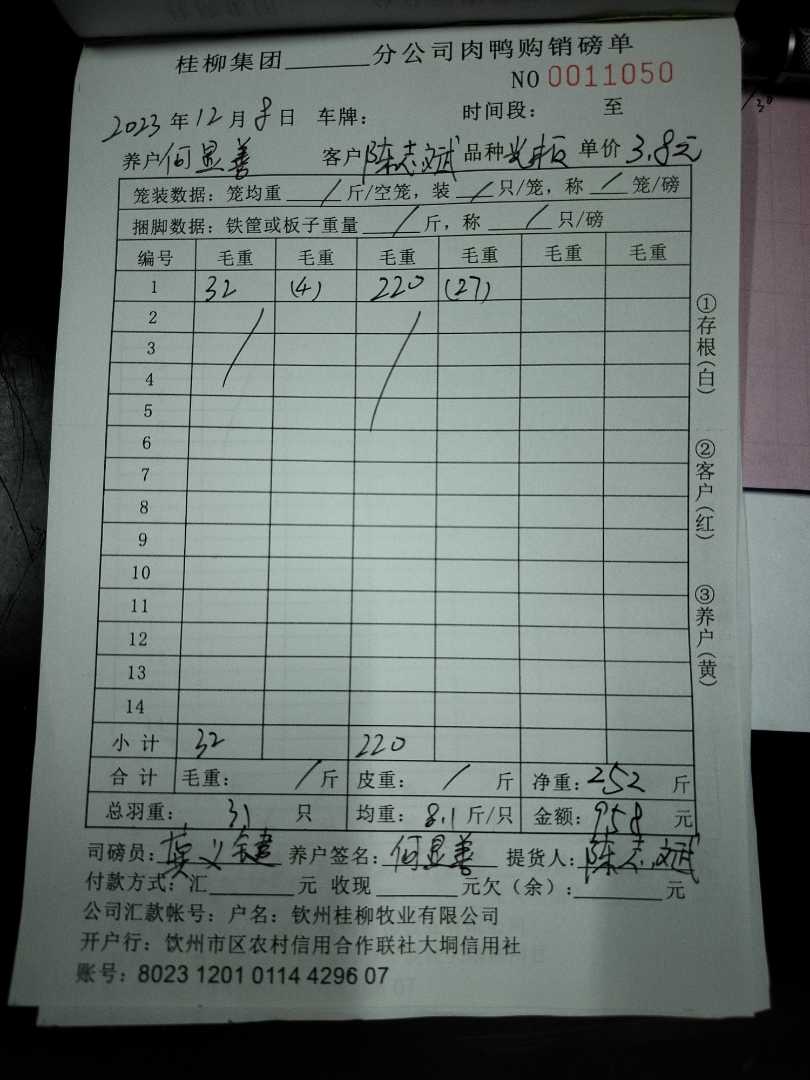 桂柳集团______分公司肉鸭购销磅单
NO 0011050
2023年12月8日 车牌: 时间段: 至
养户何显善 客户陈志斌 品种 单价3.8元
笼装数据: 笼均重 / 斤/空笼, 装 / 只/笼, 称 / 笼/磅
捆脚数据: 铁筐或板子重量 / 斤, 称 / 只/磅
编号 毛重 毛重 毛重 毛重 毛重 毛重
1 32 (4) 220 (27)
2
3
4
5
6
7
8
9
10
11
12
13
14
小计 32 220
合计 毛重: / 斤 皮重: / 斤 净重: 252 斤
总羽重: 31 只 均重: 8.1 斤/只 金额: 958 元
司磅员: 义 养户签名: 何显善 提货人: 陈志斌
付款方式: 汇______元 收现______元欠(余):______元
公司汇款帐号: 户名: 钦州桂柳牧业有限公司
开户行: 饮州市区农村信用合作联社大垌信用社
账号: 8023 1201 0114 4296 07
①存根(白)
②客户(红)
③养户(黄)